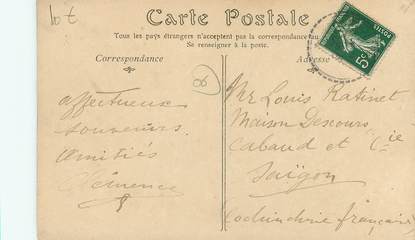 Carte Postale
Tous les pays étrangers n'acceptent pas la correspondance au
Se renseigner à la poste.
Correspondance
Adresse
affectueux
souvenirs.
amitiés
Clémence
Mr Louis Ratinet
Maison Descours
Cabaud et Cie
Saïgon
(Cochinchine française)
5c
POSTES